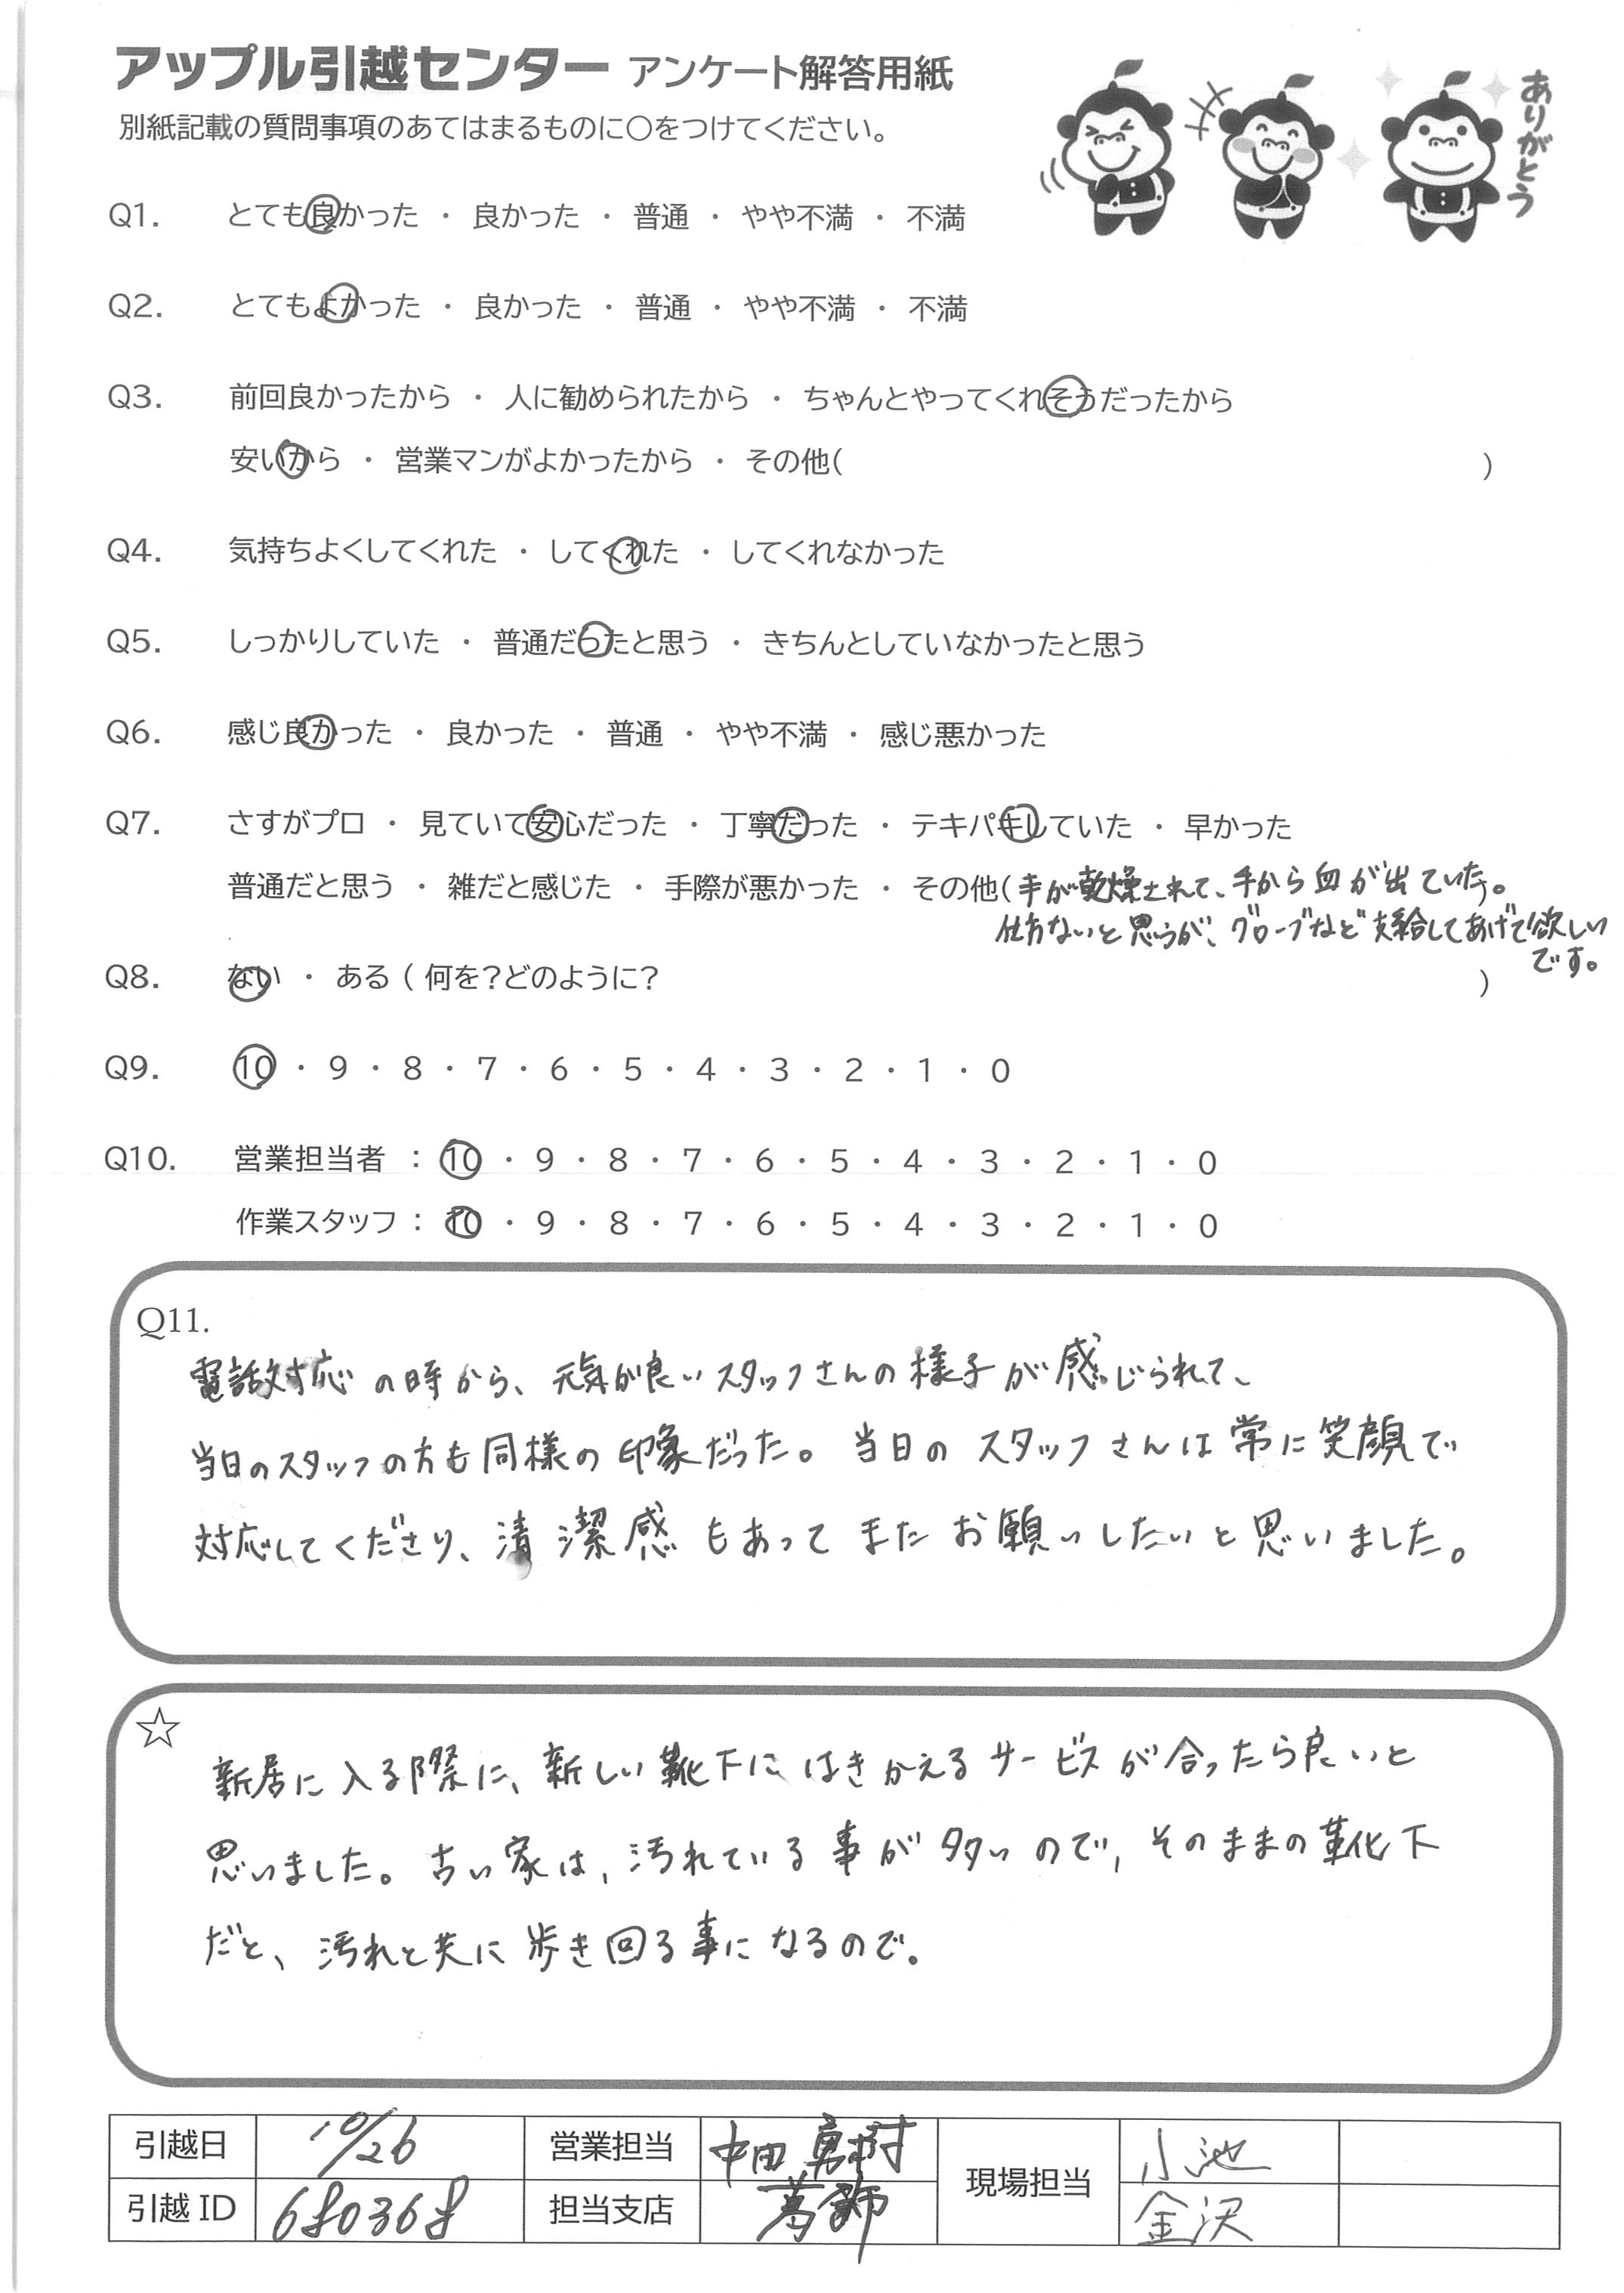 アップル引越センター アンケート解答用紙
ありがとう
別紙記載の質問事項のあてはまるものに○をつけてください。
Q1. とても良かった ・ 良かった ・ 普通 ・ やや不満 ・ 不満
Q2. とてもよかった ・ 良かった ・ 普通 ・ やや不満 ・ 不満
Q3. 前回良かったから ・ 人に勧められたから ・ ちゃんとやってくれそうだったから
安いから ・ 営業マンがよかったから ・ その他( )
Q4. 気持ちよくしてくれた ・ してくれた ・ してくれなかった
Q5. しっかりしていた ・ 普通だったと思う ・ きちんとしていなかったと思う
Q6. 感じ良かった ・ 良かった ・ 普通 ・ やや不満 ・ 感じ悪かった
Q7. さすがプロ ・ 見ていて安心だった ・ 丁寧だった ・ テキパキしていた ・ 早かった
普通だと思う ・ 雑だと感じた ・ 手際が悪かった ・ その他(手が乾燥されて、手から血が出ていた。)
仕方ないと思うが、グローブなど支給してあげて欲しい
です。
Q8. ない ・ ある ( 何を?どのように? )
Q9. 10 ・ 9 ・ 8 ・ 7 ・ 6 ・ 5 ・ 4 ・ 3 ・ 2 ・ 1 ・ 0
Q10. 営業担当者 : 10 ・ 9 ・ 8 ・ 7 ・ 6 ・ 5 ・ 4 ・ 3 ・ 2 ・ 1 ・ 0
作業スタッフ : 10 ・ 9 ・ 8 ・ 7 ・ 6 ・ 5 ・ 4 ・ 3 ・ 2 ・ 1 ・ 0
Q11.
電話対応の時から、元気が良いスタッフさんの様子が感じられて、
当日のスタッフの方も同様の印象だった。当日のスタッフさんは常に笑顔で
対応してくださり、清潔感もあってまたお願いしたいと思いました。
☆
新居に入る際に、新しい靴下にはきかえるサービスが合ったら良いと
思いました。古い家は、汚れている事が多いので、そのままの靴下
だと、汚れと共に歩き回る事になるので。
引越日 10/26 営業担当 中田 勇村 現場担当 小池
引越ID 680368 担当支店 葛飾 金沢